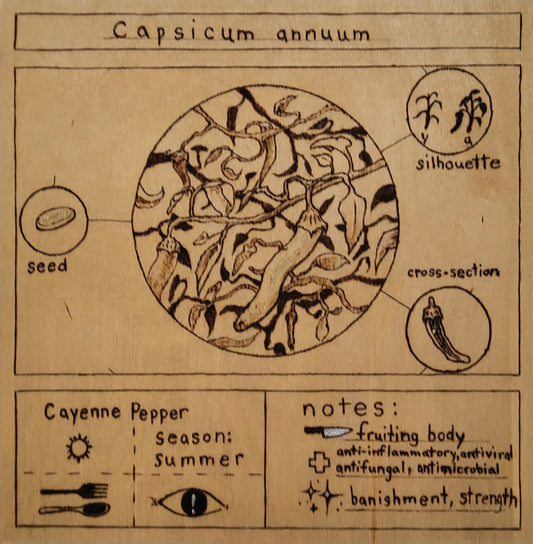 Capsicum annuum
y a
silhouette
seed
cross-section
Cayenne Pepper
season:
summer
notes:
fruiting body
anti-inflammatory, antiviral
antifungal, antimicrobial
banishment, strength